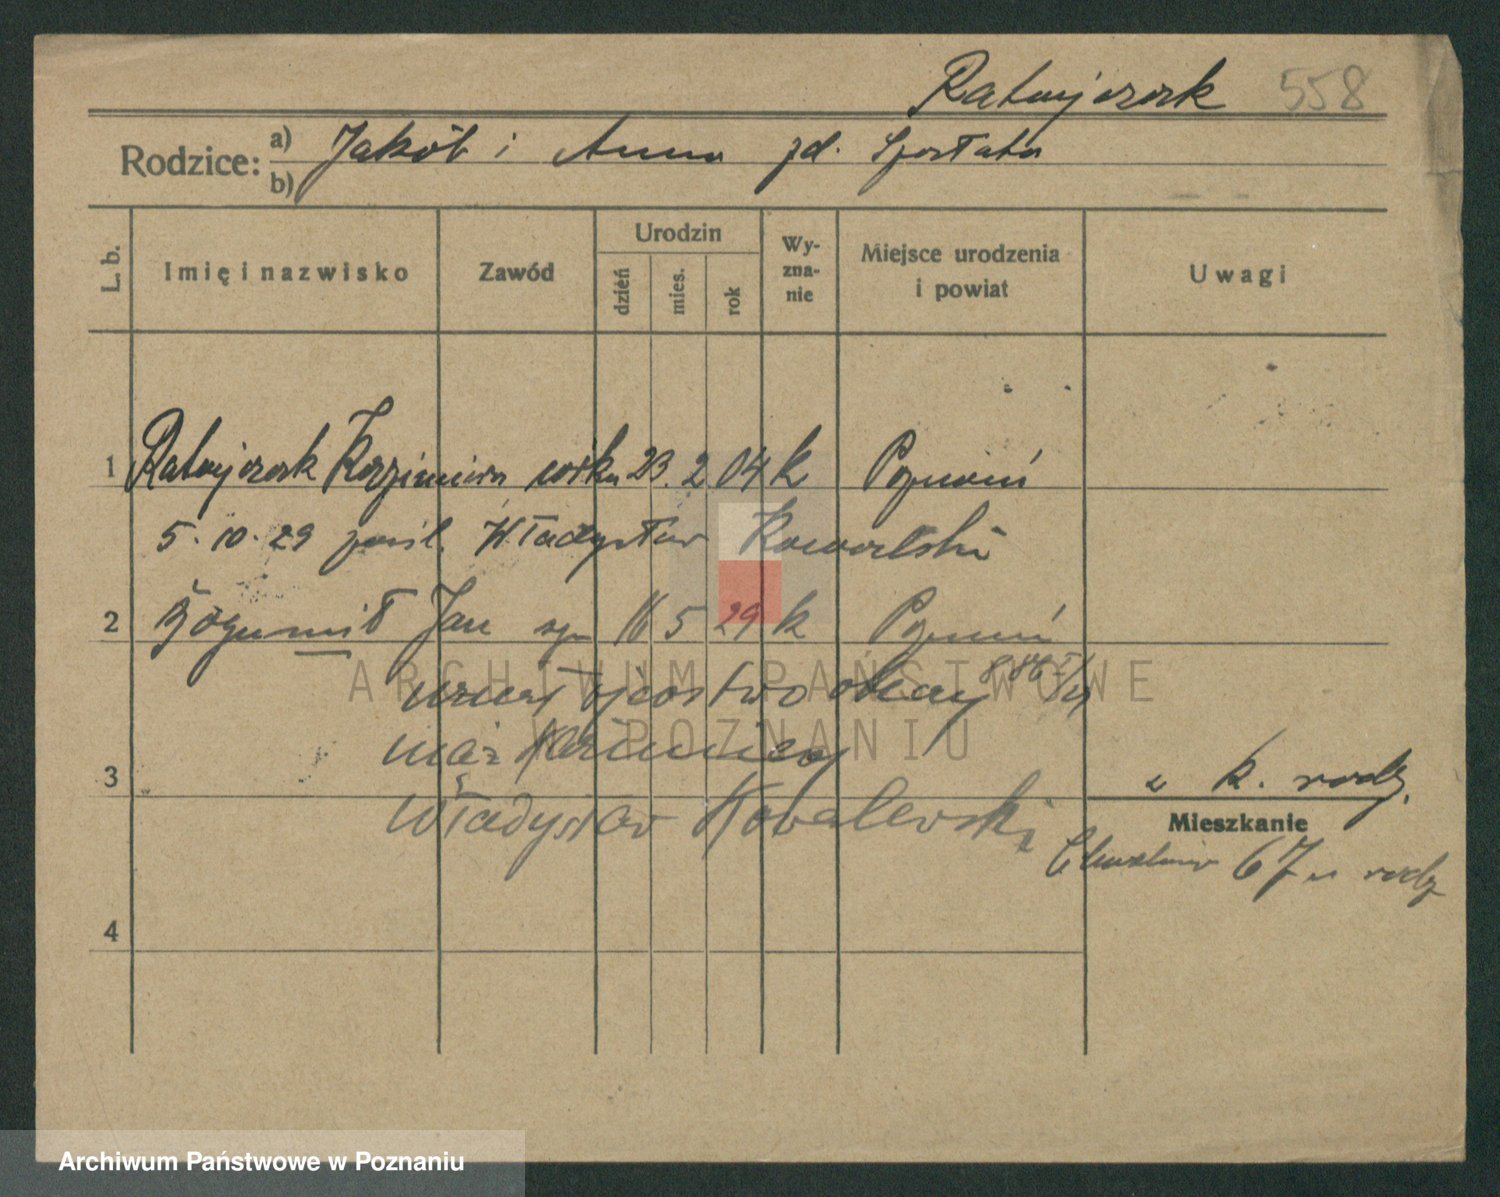 Ratajczak 558
Rodzice: a) Jakób i Anna zd. Szostak
b)
L. b.
Imię i nazwisko
Zawód
Urodzin
dzień
mies.
rok
Wy-
zna-
nie
Miejsce urodzenia
i powiat
Uwagi
1 Ratajczak Kazimiera córka 23. 2 04 k Poznań
5. 10. 29 zaśl. Władysław Kowalski
2 Bogumił Jan syn 16 5 29 k Poznań
ojcostwo
mąż Kazimiery
3 Władysław Kowalewski
u k. rodz.
Mieszkanie
67 u rodz
4
ARCHIWUM PAŃSTWOWE
W POZNANIU
Archiwum Państwowe w Poznaniu